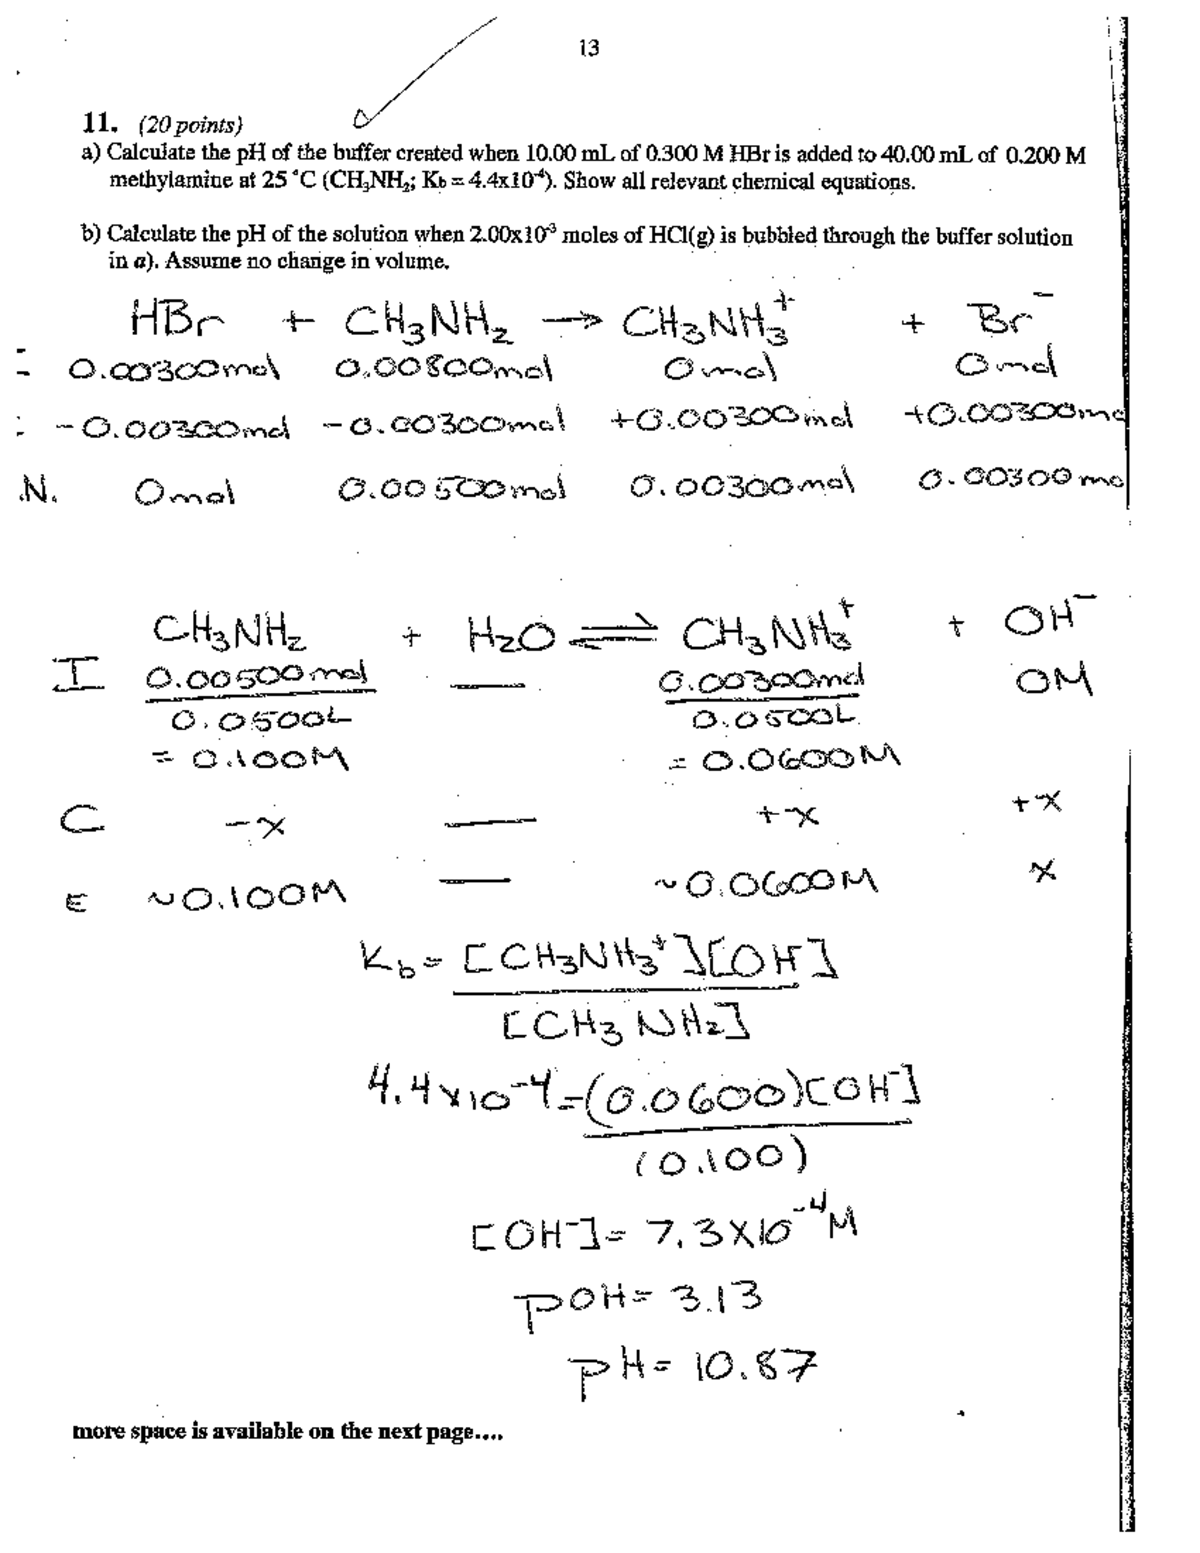 13
11. (20 points)
a) Calculate the pH of the buffer created when 10.00 mL of 0.300 M HBr is added to 40.00 mL of 0.200 M
methylamine at 25 °C (CH₃NH₂; Kb = 4.4x10⁻⁴). Show all relevant chemical equations.
b) Calculate the pH of the solution when 2.00x10⁻³ moles of HCl(g) is bubbled through the buffer solution
in a). Assume no change in volume.
HBr + CH₃NH₂ → CH₃NH₃⁺ + Br⁻
0.00300mol 0.00800mol 0mol 0mol
-0.00300mol -0.00300mol +0.00300mol +0.00300mo
.N. 0mol 0.00500mol 0.00300mol 0.00300mo
CH₃NH₂ + H₂O ⇌ CH₃NH₃⁺ + OH⁻
I 0.00500mol — 0.00300mol 0M
0.0500L 0.0500L
= 0.100M = 0.0600M
C -x — +x +x
E ~0.100M — ~0.0600M x
Kb = [CH₃NH₃⁺][OH⁻]
[CH₃NH₂]
4.4x10⁻⁴ = (0.0600)[OH⁻]
(0.100)
[OH⁻] = 7.3x10⁻⁴M
pOH = 3.13
pH = 10.87
more space is available on the next page....